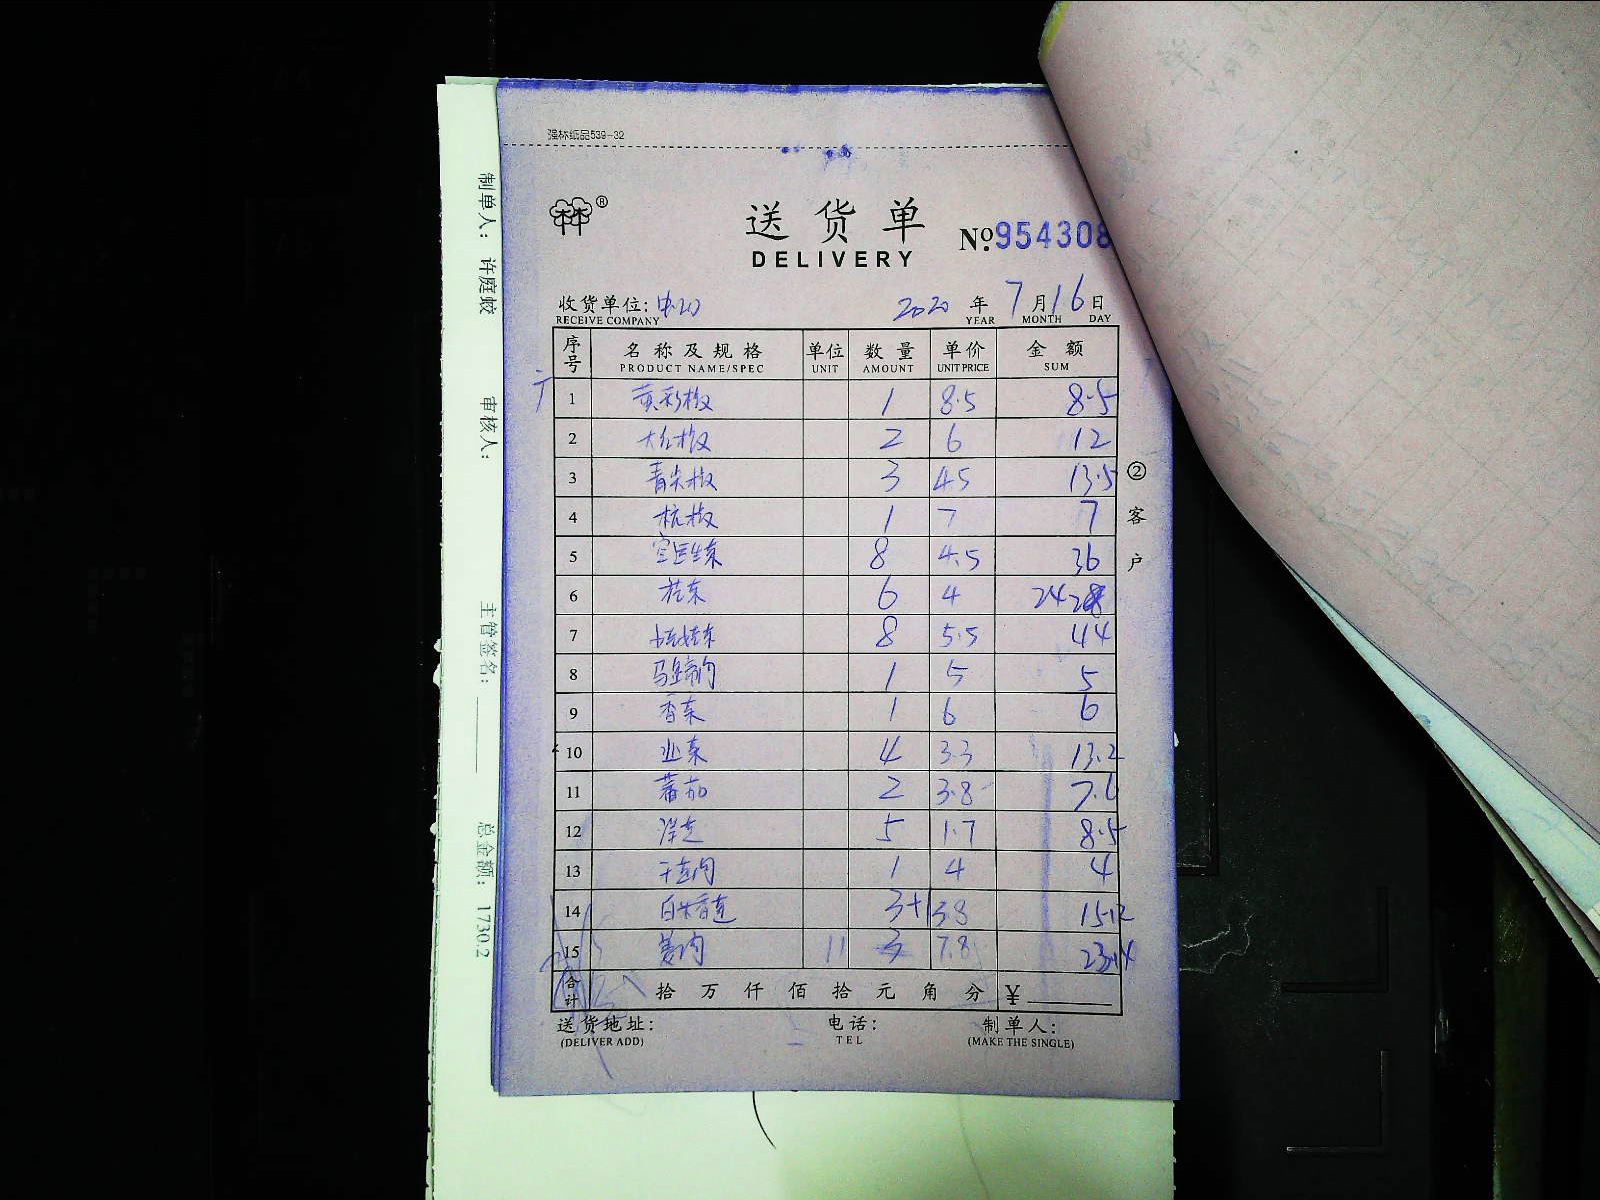 强林纸品539-32
®
送货单
DELIVERY
№954308
收货单位:
RECEIVE COMPANY
2020 年 7 月 16 日
YEAR MONTH DAY
序号 名称及规格 单位 数量 单价 金额
PRODUCT NAME/SPEC UNIT AMOUNT UNIT PRICE SUM
1 黄彩椒 1 8.5 8.5
2 大红椒 2 6 12
3 青尖椒 3 4.5 13.5
4 杭椒 1 7 7
5 8 4.5 36
6 6 4 24
7 8 5.5 44
8 马蹄肉 1 5 5
9 香菜 1 6 6
10 4 3.3 13.2
11 蕃茄 2 3.8 7.6
12 5 1.7 8.5
13 1 4 4
14 3+1 3.8 15.12
15 姜肉 3 7.8 23.4
合计 拾 万 仟 佰 拾 元 角 分 ¥
送货地址:
(DELIVER ADD)
电话:
TEL
制单人:
(MAKE THE SINGLE)
② 客户
制单人: 许庭蛟 审核人: 主管签名: 总金额: 1730.2